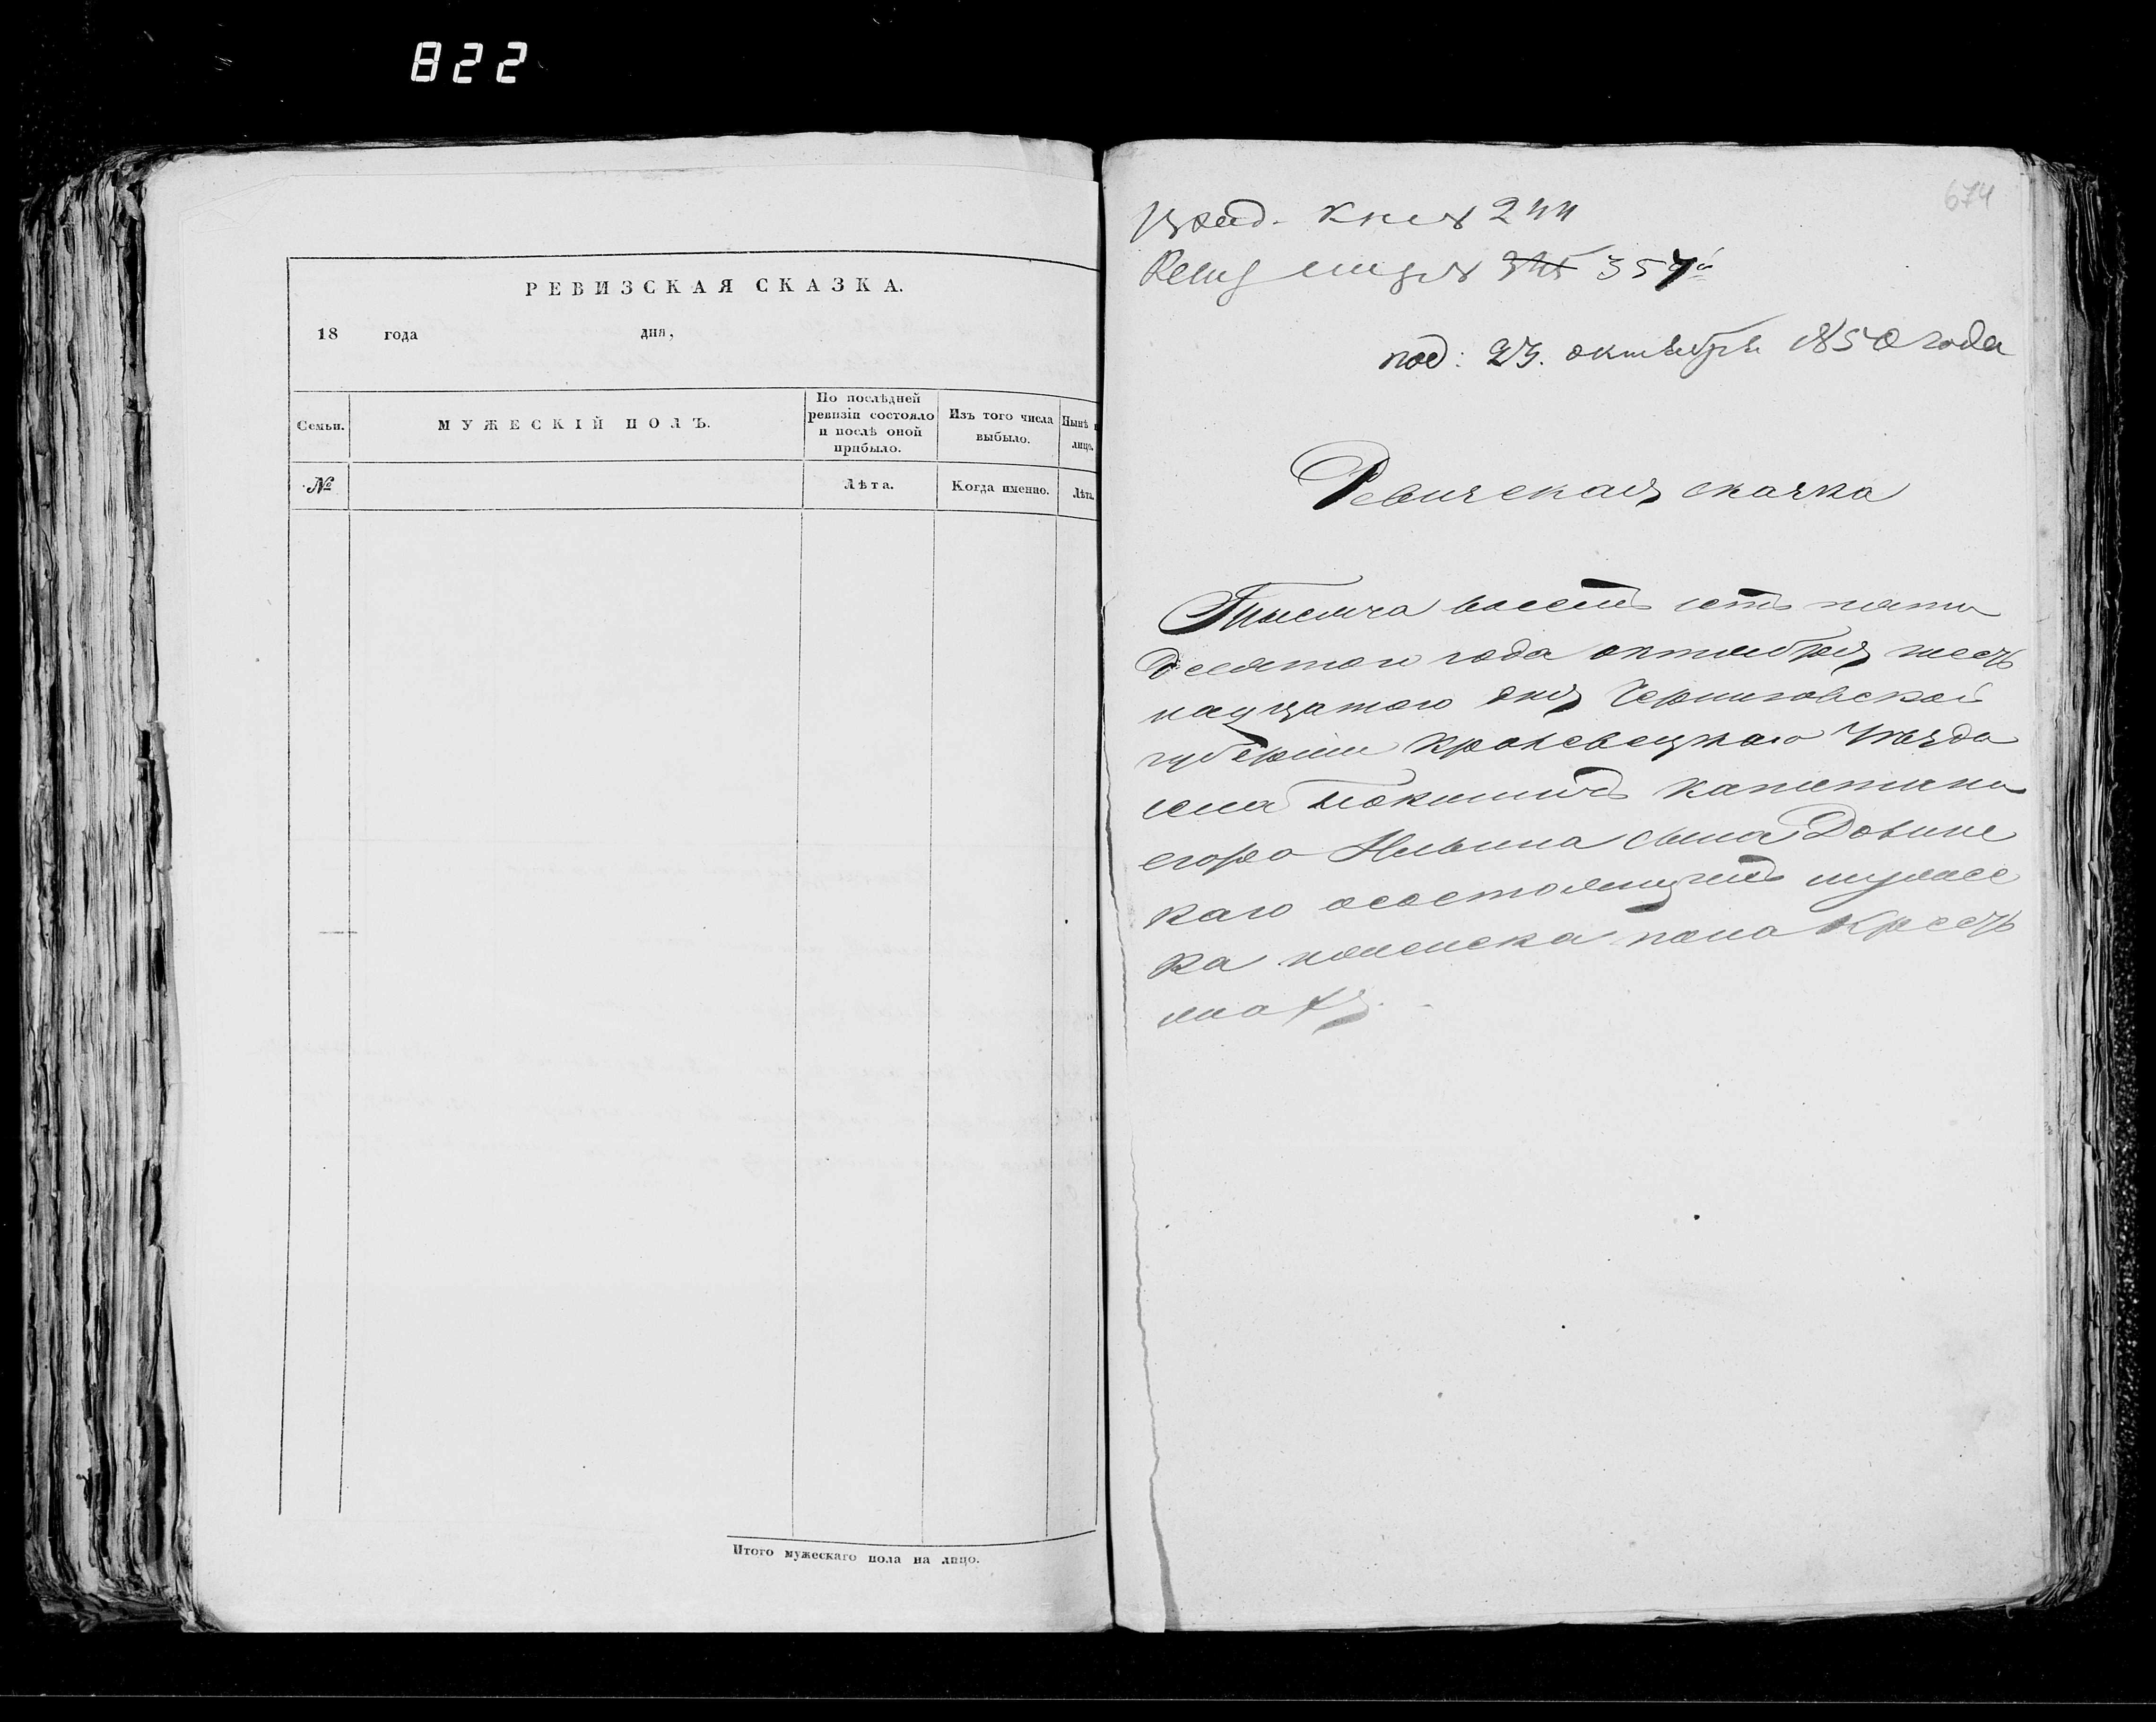 822
РЕВИЗСКАЯ СКАЗКА.
18 года дня,
Семьи.
МУЖЕСКІЙ ПОЛЪ.
По послѣдней ревизіи состояло и послѣ оной прибыло.
Изъ того числа выбыло.
Нынѣ
лицо.
№
Лѣта.
Когда именно.
Лѣта.
Итого мужескаго пола на лицо.
674
244
357
под: 23. октября 1850 года
Ревизская сказка
Тысяча восемъ сотъ пяти
десятого года октября шест
надцатого дня Черниговской
губерніи Кролевецкаго Уѣзда
села капитана
егора сына
каго осостоящихъ мужес
ка женска пола Крестъ
янахъ